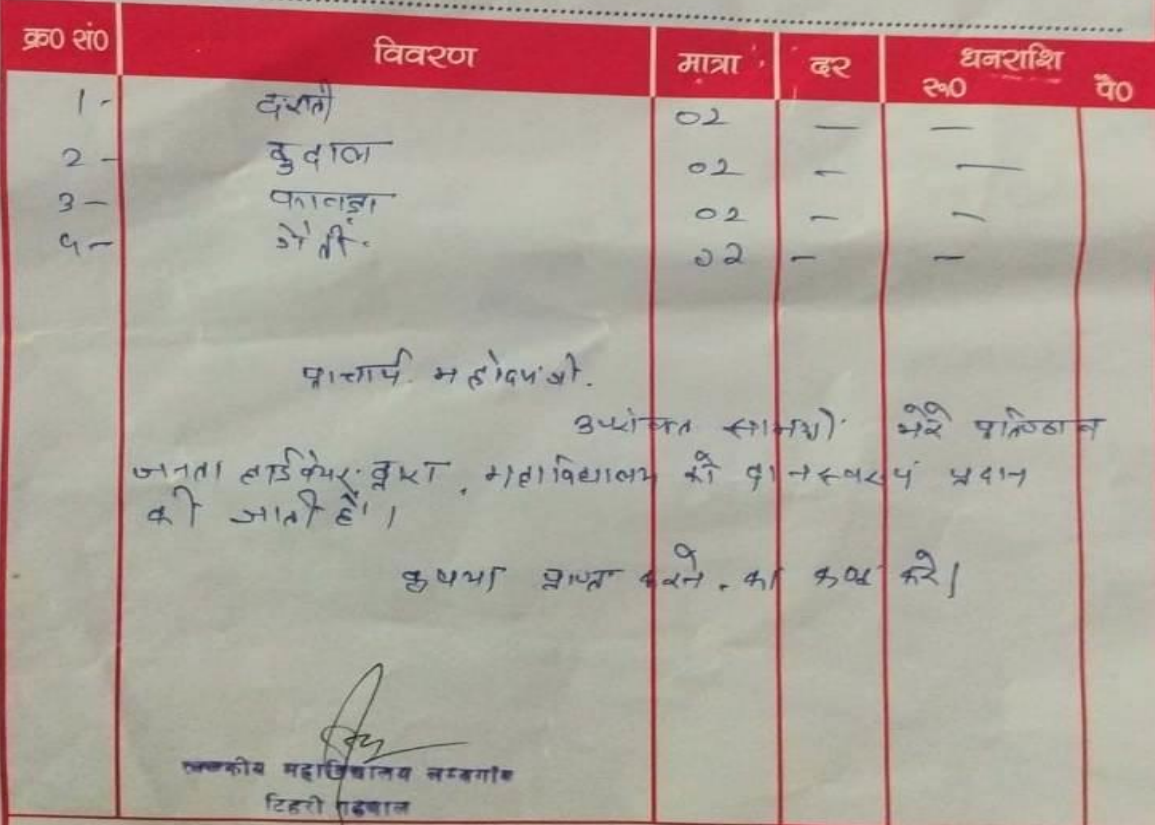 क्र0 सं0 विवरण मात्रा दर धनराशि
रू0 पै0
1- दराती 02 — —
2- कुदाल 02 — —
3- फावडा 02 — —
4- गेंती 02 — —
प्राचार्य महोदय जी.
उपरोक्त सामग्री मेरे प्रतिष्ठान
जनता हार्डवेयर द्वारा, महाविद्यालय को दानस्वरूप प्रदान
की जाती है।
कृपया प्राप्त करने का कष्ट करें।
राजकीय महाविद्यालय लम्बगाँव
टिहरी गढवाल